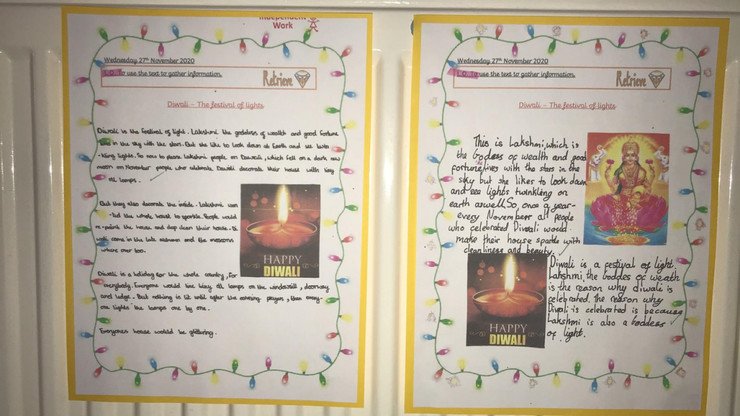 Independent
Work
Wednesday 27th November 2020
L.O. To use the text to gather information.
Retrieve
Diwali – The festival of lights
Diwali is the festival of light. Lakshmi the goddess of wealth and good fortune
in the sky with the stars. But she like to look down at Earth and see twin
-kling lights. So now to please Lakshmi people on Diwali, which fell on a dark new
moon in November people who celebrate Diwali decorate their house with tiny
oil lamps.
But they also decorate the inside. Lakshmi wan
-ted the whole house to sparkle. People would
re-paint the house and
come in the late autumn and the monsoons
where over too.
HAPPY
DIWALI
Diwali is a holiday for the whole country, for
everybody. Everyone would line tiny oil lamps on the windowsill, doorway
and ledge. But nothing is lit until after the evening prayer, then every-
one lights the lamps one by one.
Everyones house would be glittering.
Wednesday 27th November 2020
L.O. To use the text to gather information.
Retrieve
Diwali – The festival of lights
This is Lakshmi, which is
the Godess of wealth and good
fortune lives with the stars in the
sky but she likes to look down
and see lights twinkling on
earth aswell. So, once a year-
every November all people
who celebrated Diwali would
make their house sparkle with
cleanliness and beauty.
Diwali is a festival of light.
Lakshmi, the Goddes of weath
is the reason why diwali is
celebrated. the reason why
Diwali is celebrated is because
Lakshmi is also a Goddess
of light.
HAPPY
DIWALI